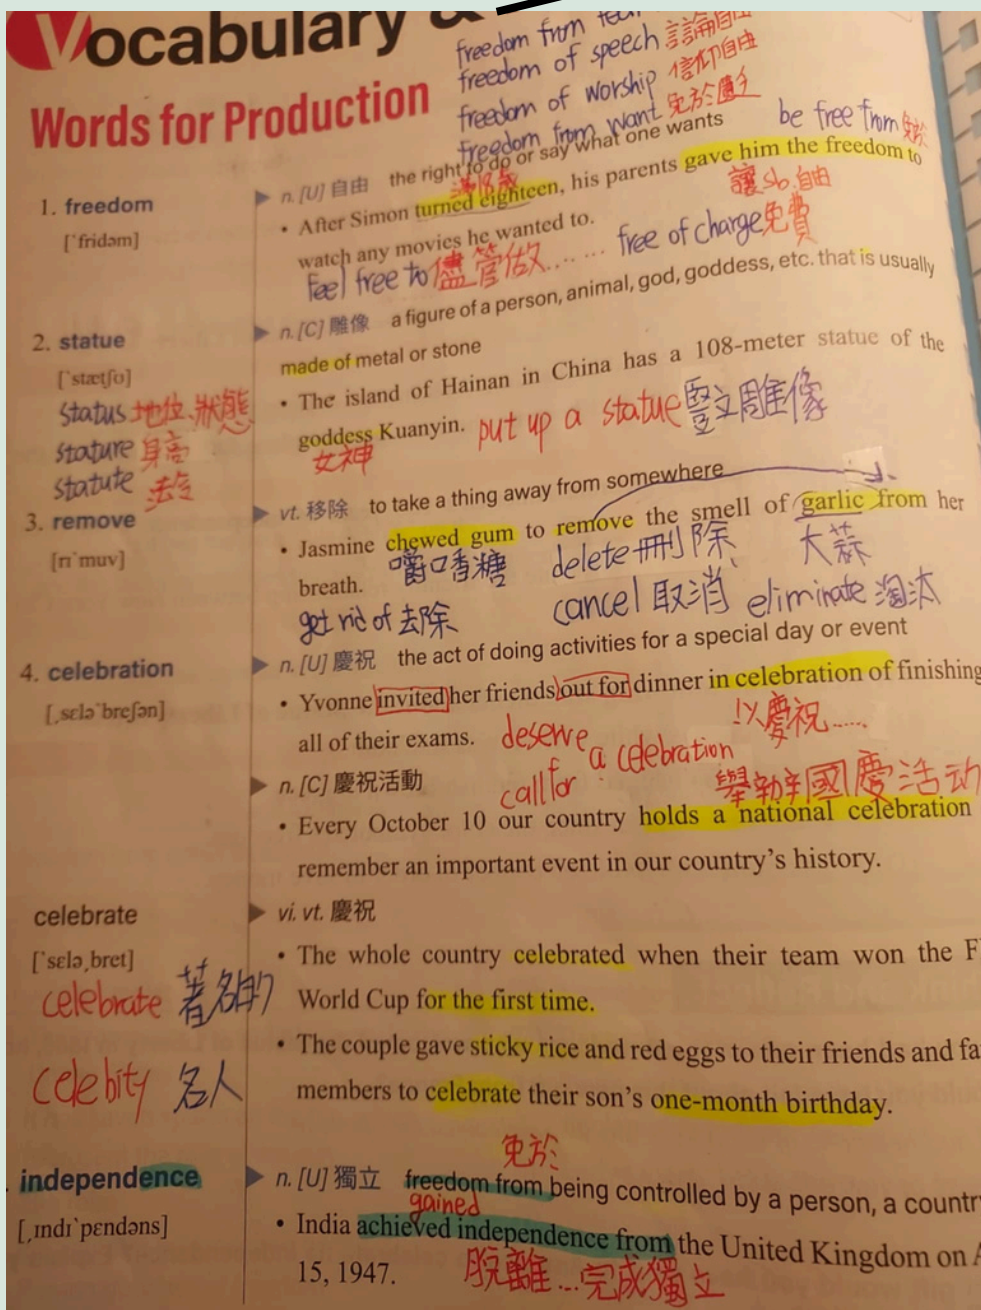 Vocabulary &
freedom from
freedom of speech 言論自由
freedom of worship 信仰自由
freedom from want 免於匱乏
Words for Production
be free from 免於
1. freedom
[ˋfridəm]
n. [U] 自由 the right to do or say what one wants
滿18歲
• After Simon turned eighteen, his parents gave him the freedom to
讓sb.自由
watch any movies he wanted to.
Feel free to 儘管做...... free of charge 免費
2. statue
[ˋstætʃʊ]
n. [C] 雕像 a figure of a person, animal, god, goddess, etc. that is usually
made of metal or stone
• The island of Hainan in China has a 108-meter statue of the
goddess Kuanyin. put up a statue 豎立雕像
女神
status 地位、狀態
stature 身高
statute 法令
3. remove
[rɪˋmuv]
vt. 移除 to take a thing away from somewhere
• Jasmine chewed gum to remove the smell of garlic from her
嚼口香糖 delete 刪除、 大蒜
breath.
get rid of 去除 cancel 取消 eliminate 淘汰
4. celebration
[ˌsɛləˋbreʃən]
n. [U] 慶祝 the act of doing activities for a special day or event
• Yvonne invited her friends out for dinner in celebration of finishing
以慶祝......
all of their exams. deserve
call for a celebration
n. [C] 慶祝活動
舉辦國慶活动
• Every October 10 our country holds a national celebration
remember an important event in our country's history.
celebrate
[ˋsɛləˌbret]
vi. vt. 慶祝
• The whole country celebrated when their team won the F
World Cup for the first time.
celebrate 著名的
• The couple gave sticky rice and red eggs to their friends and fa
members to celebrate their son's one-month birthday.
celebity 名人
免於
independence
[ˌɪndɪˋpɛndəns]
n. [U] 獨立 freedom from being controlled by a person, a countr
gained
• India achieved independence from the United Kingdom on A
15, 1947. 脫離...完成獨立